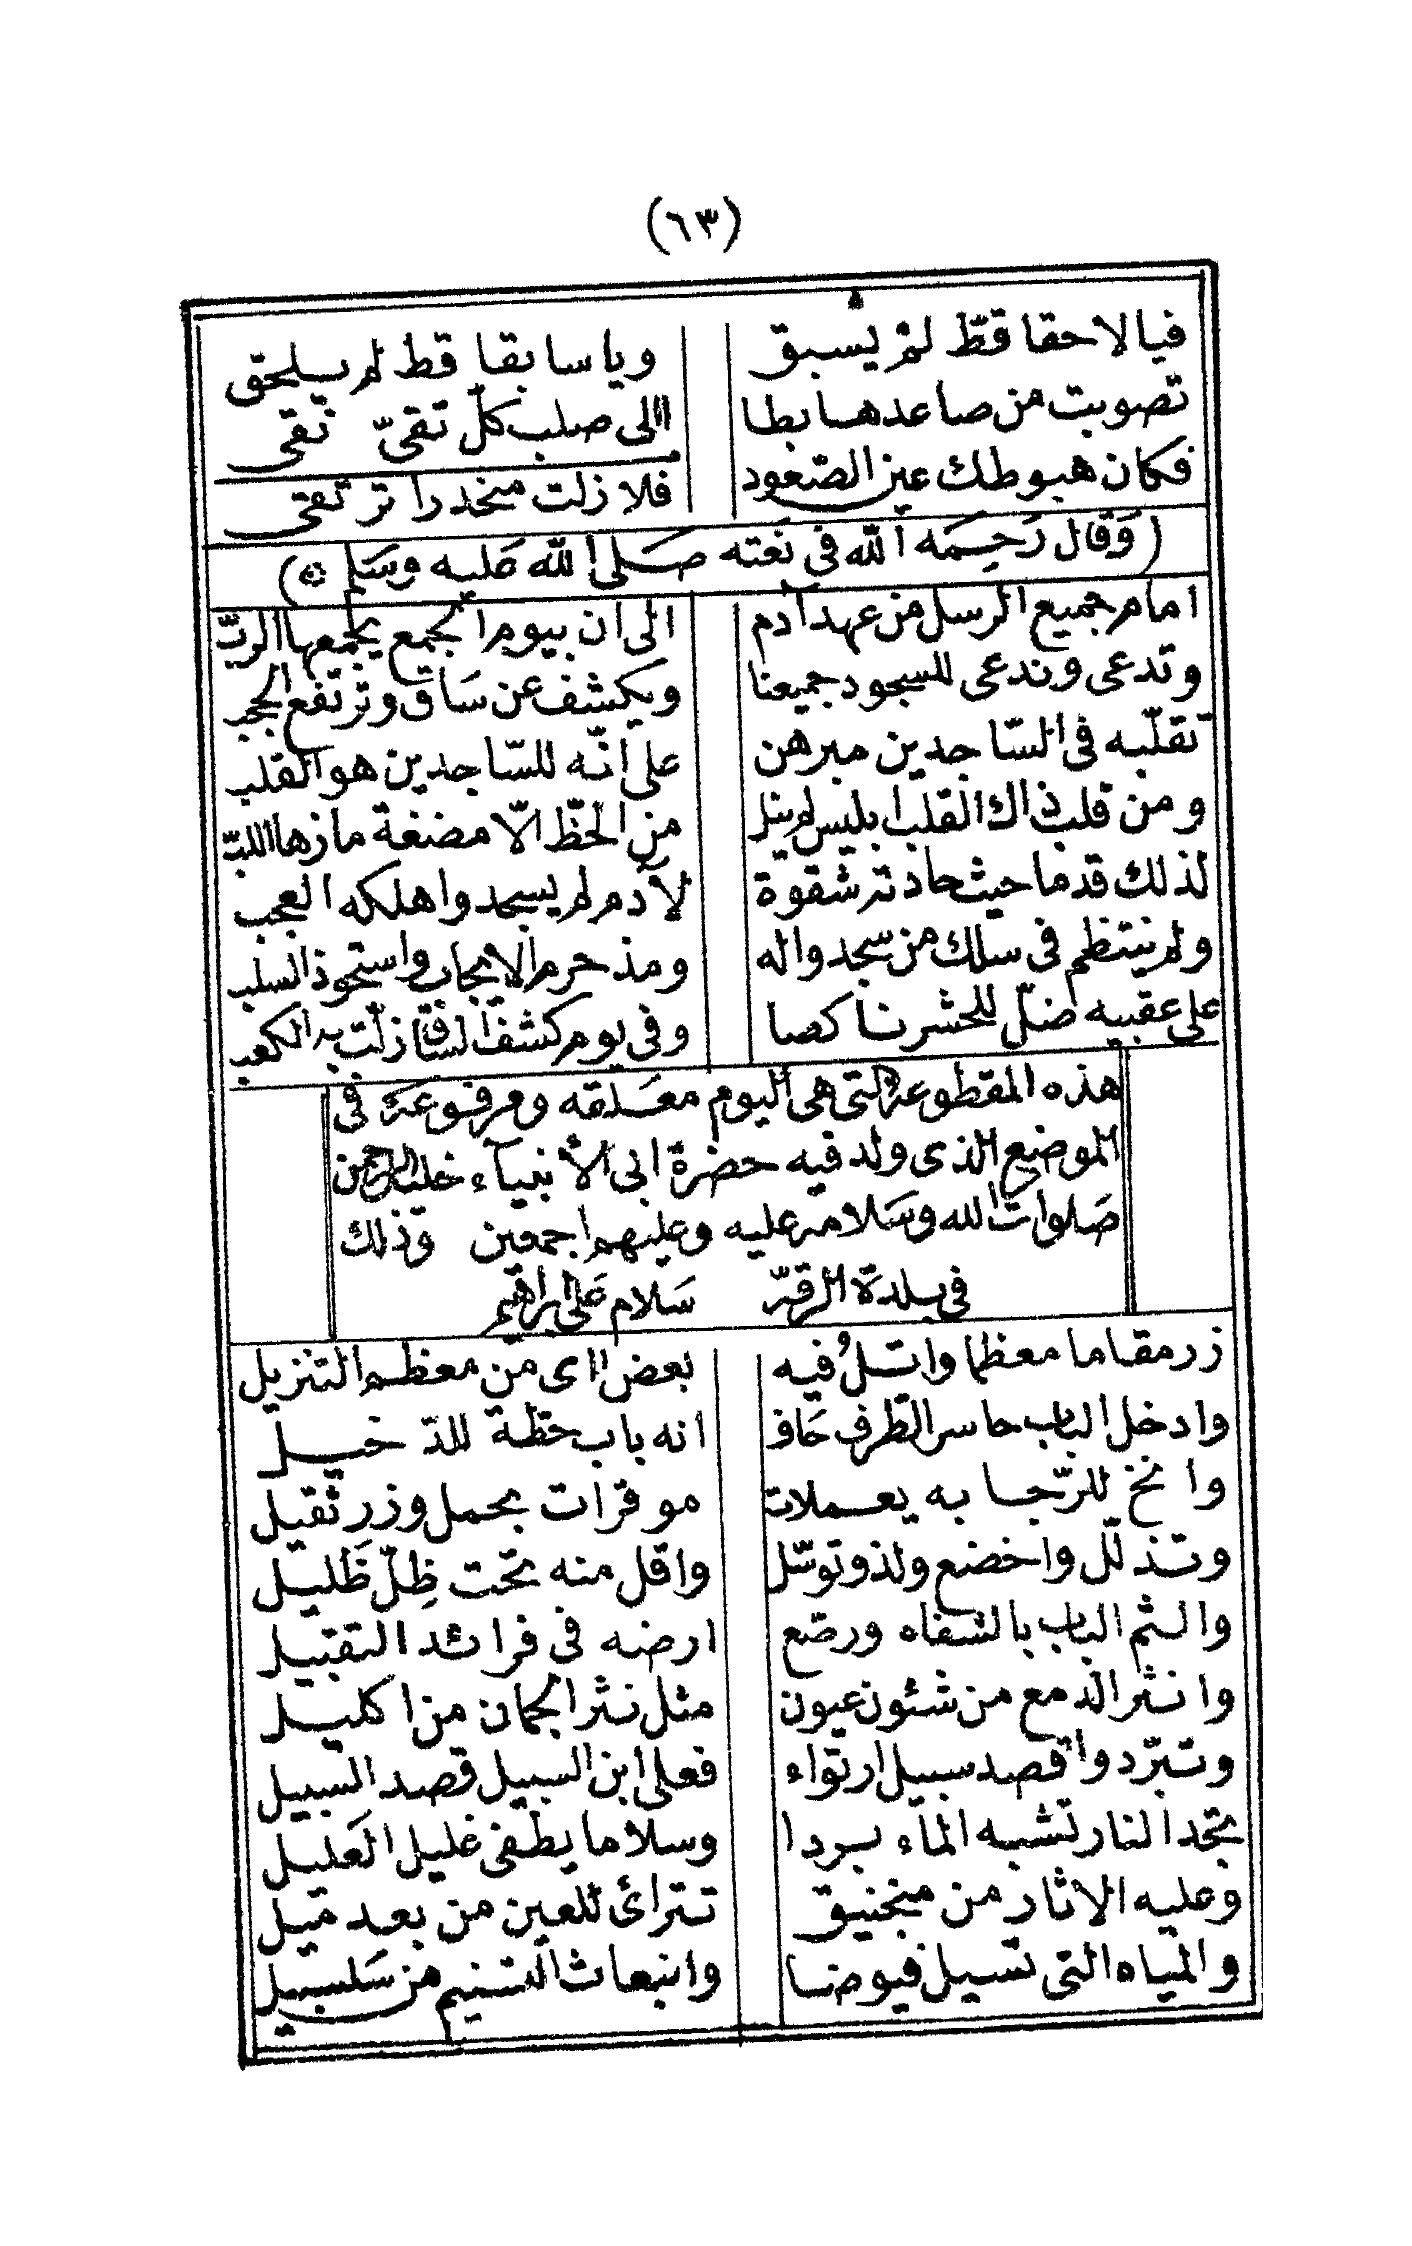 (٦٣)
فيا لاحقا قطّ لم يسبق ويا سابقا قط لم يلحق
تصوبت من صاعد هابطا الى صلب كلّ تقىّ نقى
فكان هبوطك عين الصّعود فلا زلت منحدرا ترتقى
(وَقال رَحِمَه الله فى نَعته صَلى الله عَليه وسَلم)
امام جميع الرسل من عهد آدم الى ان بيوم الجمع يجمعها الربّ
وتدعى وندعى للسجود جميعنا ويكشف عن سَاق وترتفع الحجب
تقلّبه فى السّاجدين مبرهن على انّه للسّاجدين هو القلب
ومن قلب ذاك القلب ابليس لم ينل من الحظّ الّا مضغة مازها اللبّ
لذلك قدما حيث حادته شقوة لآدم لم يسجد واهلكه العجب
ولم ينتظم فى سلك من سجدوا له ومذ حرم الايجاب واستحوذ السلب
على عقبيه ضلّ للحشر ناكصا وفى يوم كشف السّاق زلّت به الكعب
هذه المقطوعة التى هى اليوم معَلقه ومرفوعة فى
الموضع الذى ولد فيه حضرة ابى الأنبيآء خليل الرحمن
صَلوات الله وسَلامه عليه وعليهم اجمعين وذلك
فى بلدة الرقه سَلام عَلى ابراهيم
زر مقاما معظما واتلُ فيه بعض اى من معظم التنزيل
وادخل الباب حاسر الطرف حَاف انه باب حظة للدّخيل
وانخ للرّجا به يعملات موقرات بحمل وزر ثقيل
وتذلّل واخضع ولذ وتوسّل واقل منه تحت ظِلّ ظَليل
والثم الباب بالشفاه ورصّع ارضه فى فرائد التقبيل
وانثر الدمع من شئون عيون مثل نثر الجمان من اكليل
وتبرّد واقصد سبيل ارتواء فعلى ابن السبيل قصد السبيل
تجد النار تشبه الماء بردا وسلاما يطفى غليل العَليل
وعليه الاثار من منجنيق تترائ للعين من بعد ميل
والمياه التى تسيل فيوضا وانبعاث التسنيم من سَلسبيل